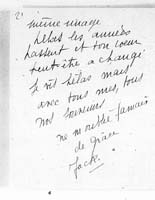 2)
même nuage
hélas les années
passent et ton cœur
peut-être a changé
hélas mais
avec tous mes, tous
nos souvenirs
ne m'oublie jamais
de grâce
Jack.